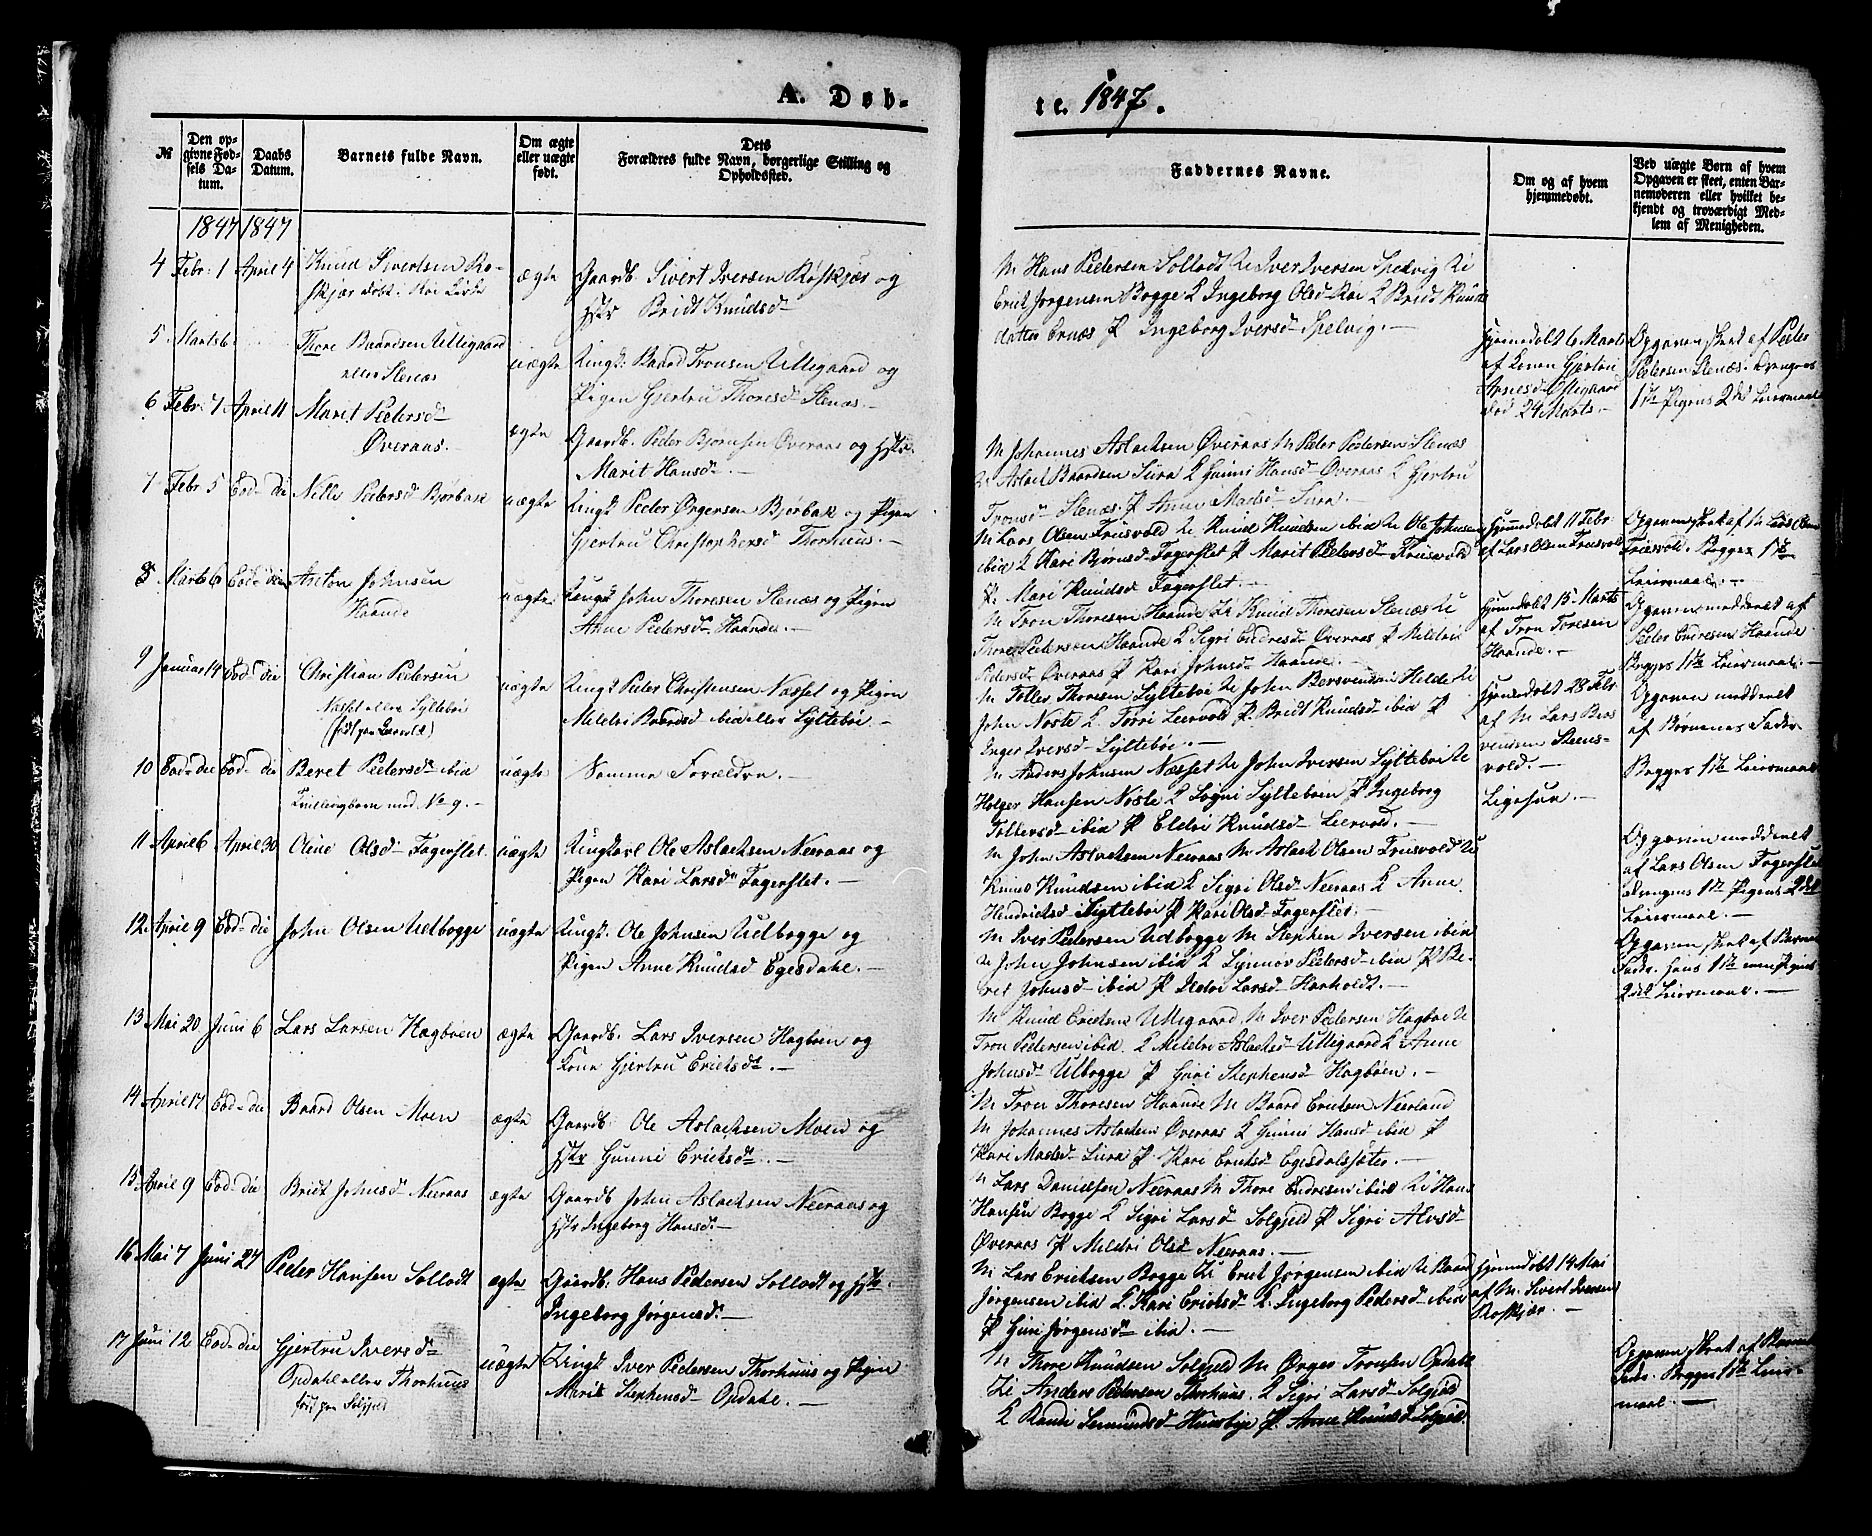 A. Døb-
te. 1847.
№
Den op-
givne Fød-
sels Da-
tum.
Daabs
Datum.
Barnets fulde Navn.
Om ægte
eller uægte
født.
Dets
Forældres fulde Navn, borgerlige Stilling og
Opholdssted.
Faddernes Navne.
Om og af hvem
hjemmedøbt.
Ved uægte Børn af hvem
Opgaven er skeet, enten Bar-
nemoderen eller hvilket be-
kjendt og troværdigt Med-
lem af Menigheden.
1847 1847
4 Febr: 1 April 4 Knud Sivertsen Rø-
skjær døbt i Røe Kirke
ægte
Gaardb. Sivert Iversen Røskjær og
Hstr Bridt Knudsd
M Hans Pedersen Sollodt U Iver Iversen Spelvig U
Erik Jørgensen Bogge K Ingeborg Olsd Røe K Bridt Knuds
datter Ernæs P Ingeborg Iversd Spelvig.
5 Marts 6 Thore Baardsen Ullegaard
eller Stenæs
uægte
Ungk: Baard Tronsen Ullegaard og
Pigen Gjertru Thoresd Stenæs.
Hjemmedøbt 6 Marts
af Konen Gjertru
Arnesd Ullegaard
død 24 Marts.
Opgaven skeet af Peder
Pedersen Stenæs. Drengens
1ste Pigens 2det Leiermaal
6 Febr: 7 April 11 Marit Pedersd
Øveraas.
ægte
Gaardb. Peder Bjørnsen Øveraas og Hstr.
Marit Hansd.
M Johannes Aslachsen Øveraas M Peder Pedersen Stenæs
U Aslak Baardsen Siira K Guni Hansd Øveraas K Gjertru
Tronsd Stenæs P Anne Madsd Siira.
7 Febr 5 Eod. die Nille Pedersd Bjørbak
uægte
Ungk Peder Ørgersen Bjørbak og Pigen
Gjertru Christophersd Thorhuus.
M Lars Olsen Friisvold U Knud Knudsen ibid U Ole Johnsen
ibid K Kari Bjørnsd Fagerslet P Marit Pedersd Friisvold
P. Mari Knudsd Fagerslet.
Hjemmedøbt 11 Febr:
af Lars Olsen Friisvold
Opgaven skeet af M Lars Olsen
Friisvold. Begges 1ste
Leiermaal.
8 Marts 6 Eod. die Anton Johnsen
Haande
uægte
Ungk John Thoresen Stenæs og Pigen
Anne Pedersd Haande.
M Tron Thoresen Haande U Knud Thoresen Stenæs U
Thore Pedersen Haande K Sigri Endresd Øveraas P Mildri
Pedersd Øveraas P Kari Johnsd Haande.
Hjemmedøbt 15 Marts
af Tron Toresen
Haande.
Opgaven meddelet af
Peder Endresen Haande
Begges 1ste Leiermaal.
9 Januar 14 Eod. die Christian Pedersen
Næsset eller Syltebøe
(født paa Leervold)
uægte
Ungk Peder Christensen Næsset og Pigen
Mildri Baardsd ibid eller Syltebøe.
M Tolles Thoresen Syltebøe U John Bersvendsen Helde U
John Noste K Torri Leervold P. Bridt Knudsd ibid P
Inger Iversd Syltebøe.
Hjemmedøbt 28 Febr
af M Lars Bers
vendsen Steens-
vold.
Opgaven meddelet
af Børnenes Fader
10 Eod. die Eod. die Beret Pedersd ibid
Tvillingbarn med No 9.
uægte
Samme Forældre.
M Anders Johnsen Næsset U John Iversen Syltebøe U
Holger Hansen Noste K Sogni Syltebøen P Ingeborg
Tollersd ibid P Eldri Knudsd Leervold.
Ligesaa.
Begges 1ste Leiermaal
11 April 6 April 30 Oline Olsd Fagerslet.
uægte
Ungkarl Ole Aslachsen Neeraas og
Pigen Kari Larsd Fagerslet.
M John Aslachsen Neeraas M Aslack Olsen Friisvold U
Knud Knudsen ibid K Sigri Olsd Neeraas K Anne
Hendriksd Syltebøe P Kari Olsd Fagerslet.
Opgaven meddelet
af Lars Olsen Fagerslet
Drengens 1ste Pigens 2det
Leiermaal.
12. April 9 Eod. die John Olsen Udbogge
uægte
Ungk. Ole Johnsen Udbogge og
Pigen Anne Knudsd Egesdahl.
M Iver Pedersen Udbogge M Stephen Iversen ibid
U John Johnsen ibid K Synnøv Pedersd ibid P Be-
ret Johnsd ibid P Ildri Larsd Hanholdt.
Opgaven skeet af Barnets
Fader. Hans 1ste men Pigens
2det Leiermaal.
13 Mai 20 Juni 6 Lars Larsen Hagbøen
ægte
Gaardb. Lars Iversen Hagbøen og
Kone Gjertru Erichsd.
M Knud Erichsen Ullegaard M Iver Pedersen Hagbøe U
Tron Pedersen ibid. K Mildri Aslachsd Ullegaard K Anne
Johnsd Udbogge P Guri Stephensd Hagbøen.
14 April 17 Eod. die Baard Olsen Moen
ægte
Gaardb: Ole Aslachsen Moen og
Hstr Gunni Erichsd.
M Tron Thoresen Haande M Baard Erichsen Neerland
M Johannes Aslachsen Øveraas K Gunni Hansd ibid P
Kari Madsd Siira P Kari Erichsd Egesdalssæter.
15 April 9 Eod. die Bridt Johnsd Neeraas
ægte
Gaardb John Aslachsen Neeraas og
Hstr Ingeborg Hansd.
M Lars Danielsen Neeraas M Thore Endresen ibid U Hans
Hansen Bogge K Sigri Larsd Solgjeld P Sigri Alvsd
Øveraas P Mildri Olsd Neeraas.
16 Mai 7 Juni 27 Peder Hansen Sollodt
ægte
Gaardb. Hans Pedersen Sollodt og Hstr.
Ingeborg Jørgensd.
M Lars Erichsen Bogge U Erik Jørgensen ibid U Baard
Jørgensen ibid K Kari Erichsd K. Ingeborg Pedersd ibid
P Guri Jørgensd ibid.
Hjemmedøbt 14 Mai
af M. Sivert Iversen
Røskjær.
17 Juni 12 Eod. die Gjertru Iversd
Opdahl eller Thorhuus
født paa Solgjeld
uægte
Ungk Iver Pedersen Thorhuus og Pigen
Marit Stephensd Opdahl.
M Thore Knudsen Solgjeld M Ørges Tronsen Opdahl
U Anders Pedersen Thorhuus. K Sigri Larsd Solgjeld
K Randi Semundsd Huusbye P. Anne Knudsd Solgjeld
Opgaven skeet af Barnets
Fader. Begges 1ste Leier-
maal.